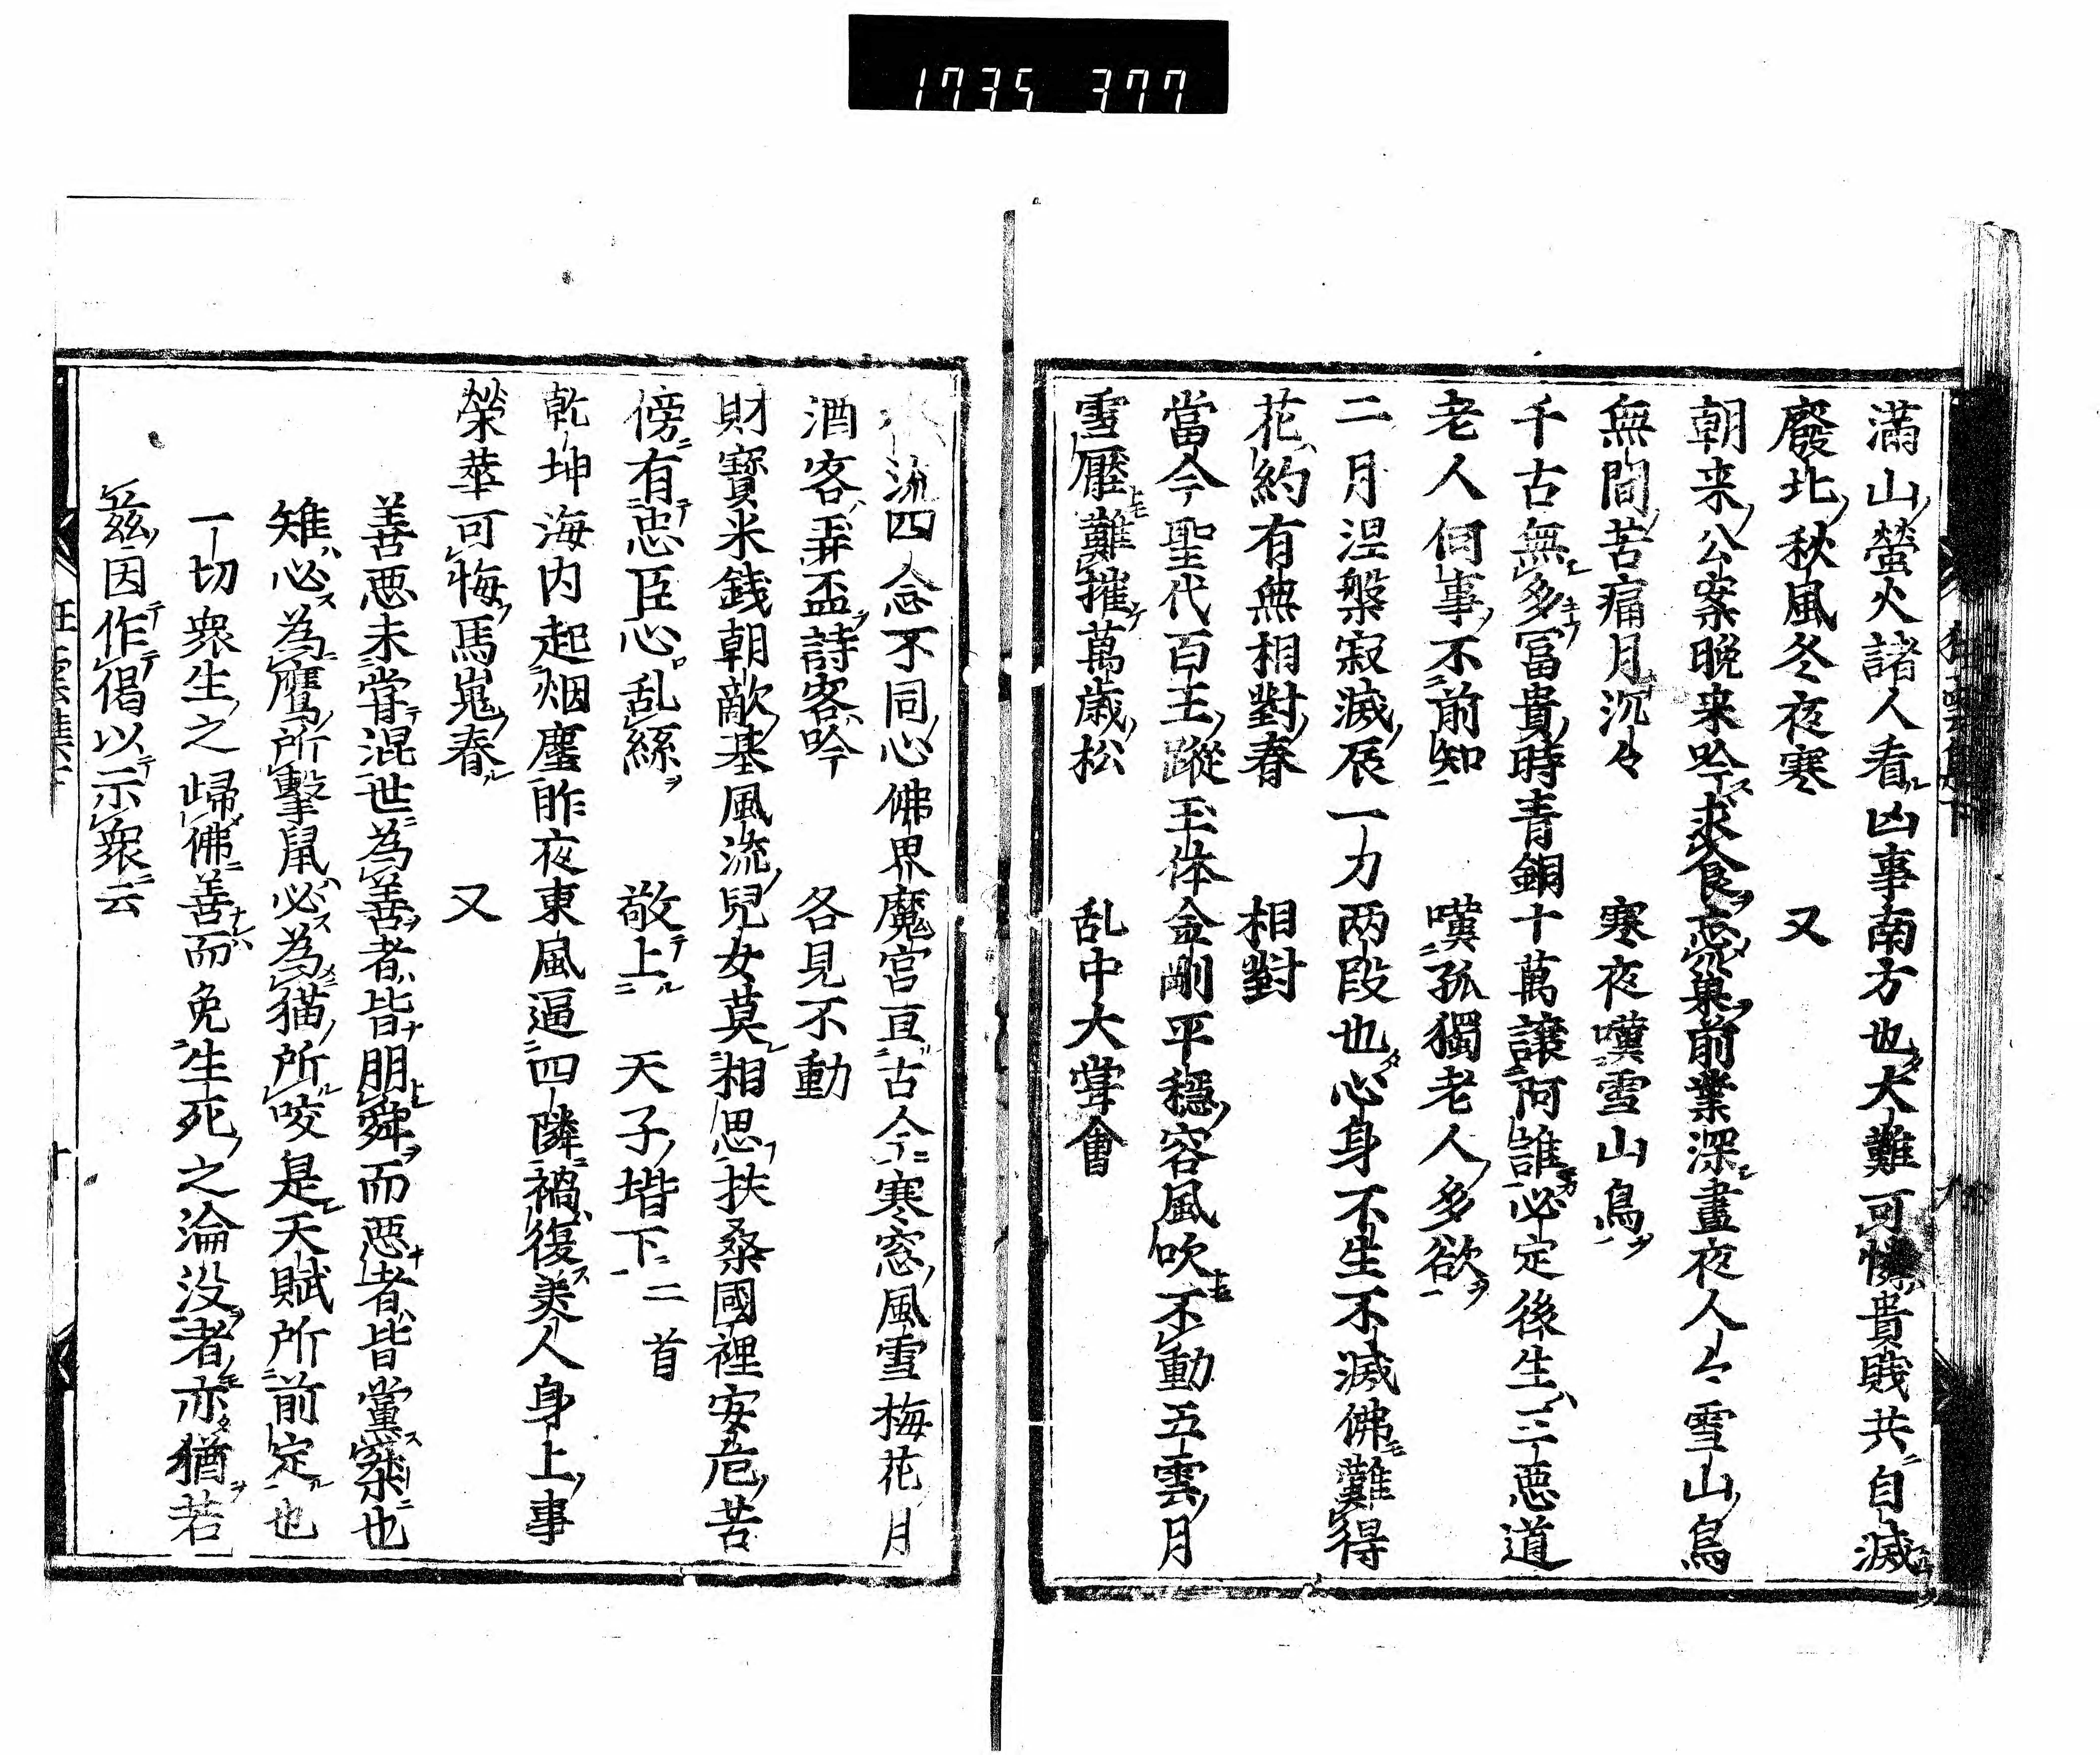 1735 377
滿山螢火諸人看凶事南方也大難可憐貴賎共自滅
廢北秋風冬夜寒　　又
朝来公案晩来吟求食忘巣前業深晝夜人々雪山鳥
無間苦痛月沉々　　寒夜嘆雪山鳥
千古無多冨貴時青銅十萬譲阿誰必定後生三悪道
老人何事不前知　　嘆孤獨老人多欲
二月涅槃寂滅辰一力两段也心身不生不滅佛難得
花約有無相對春　　相對
當今聖代百王蹤玉体金剛平穏容風吹不動五雲月
雪壓難摧萬歳松　　乱中大嘗會
流四念不同心佛界魔宮亘古今寒窓風雪梅花月
酒客弄盃詩客吟　　各見不動
財寳米錢朝敵基風流兒女莫相思扶桑國裡安危苦
傍有忠臣心乱絲　　敬上　天子堦下二首
乾坤海内起烟塵昨夜東風逼四隣禍復美人身上事
榮華可悔馬嵬春　　又
善悪未甞混世為善者皆朋舜而悪者皆黨桀也
雉必為鷹所撃鼠必為猫所咬是天賦所前定也
一切衆生之歸佛善而免生死之淪没者亦猶若
茲因作偈以示衆云
狂雲集下
十